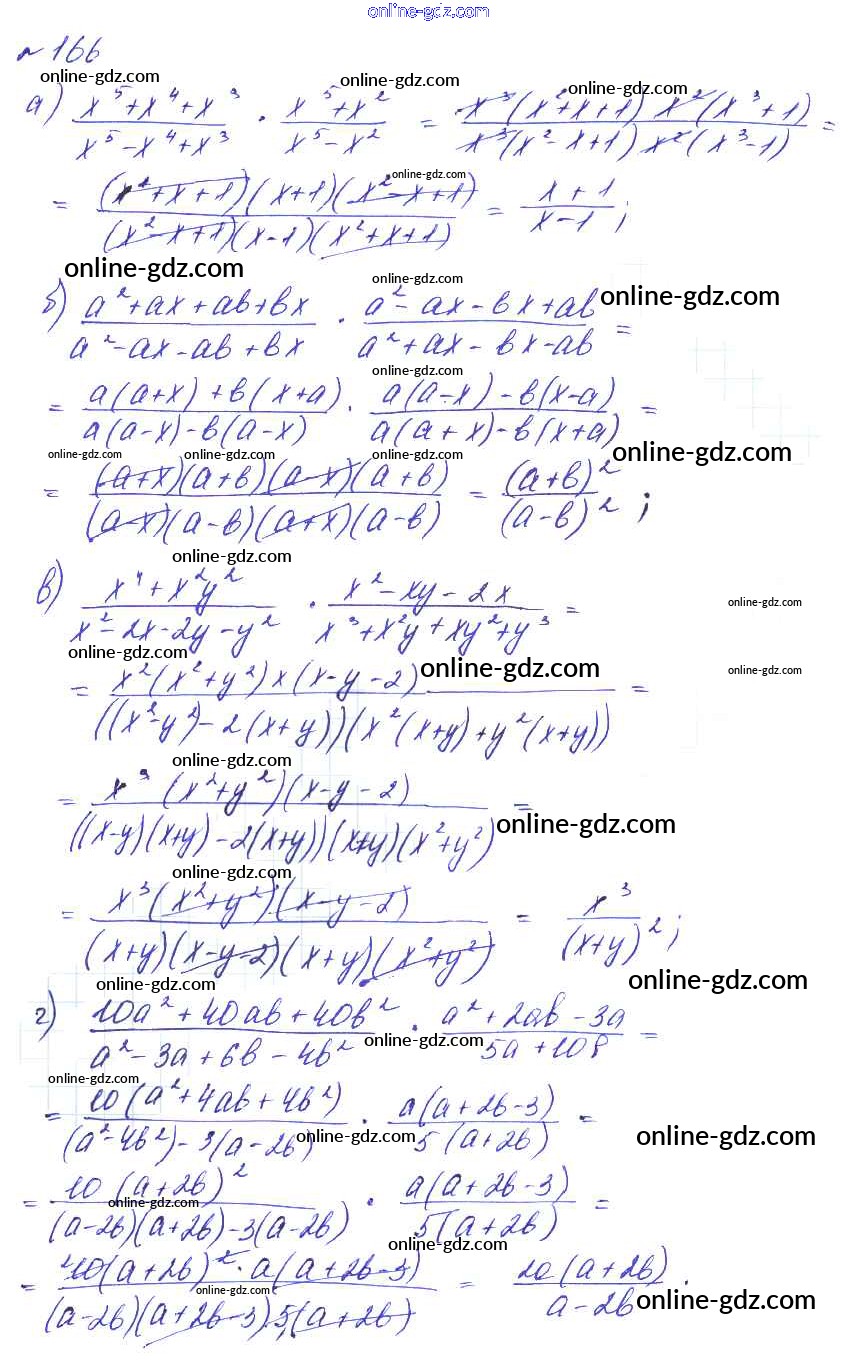 online-gdz.com
№ 166
online-gdz.com online-gdz.com online-gdz.com
а) (x⁵+x⁴+x³)/(x⁵-x⁴+x³) · (x⁵+x²)/(x⁵-x²) = (x³(x²+x+1) x²(x³+1))/(x³(x²-x+1) x²(x³-1)) =
online-gdz.com
= ((x²+x+1)(x+1)(x²-x+1))/((x²-x+1)(x-1)(x²+x+1)) = (x+1)/(x-1);
online-gdz.com online-gdz.com online-gdz.com
б) (a²+ax+ab+bx)/(a²-ax-ab+bx) · (a²-ax-bx+ab)/(a²+ax-bx-ab) =
online-gdz.com
= (a(a+x)+b(x+a))/(a(a-x)-b(a-x)) · (a(a-x)-b(x-a))/(a(a+x)-b(x+a)) =
online-gdz.com online-gdz.com online-gdz.com online-gdz.com
= ((a+x)(a+b)(a-x)(a+b))/((a-x)(a-b)(a+x)(a-b)) = (a+b)²/(a-b)²;
online-gdz.com
в) (x⁴+x²y²)/(x²-2x-2y-y²) · (x²-xy-2x)/(x³+x²y+xy²+y³) =
online-gdz.com
online-gdz.com online-gdz.com online-gdz.com
= (x²(x²+y²)x(x-y-2))/(((x²-y²)-2(x+y))(x²(x+y)+y²(x+y))) =
online-gdz.com
= (x³(x²+y²)(x-y-2))/(((x-y)(x+y)-2(x+y))(x+y)(x²+y²)) =
online-gdz.com
online-gdz.com
= (x³(x²+y²)(x-y-2))/((x+y)(x-y-2)(x+y)(x²+y²)) = x³/(x+y)²;
online-gdz.com
г) (10a²+40ab+40b²)/(a²-3a+6b-4b²) · (a²+2ab-3a)/(5a+10b) =
online-gdz.com
online-gdz.com
= (10(a²+4ab+4b²))/((a²-4b²)-3(a-2b)) · (a(a+2b-3))/(5(a+2b)) =
online-gdz.com online-gdz.com
= (10(a+2b)²)/((a-2b)(a+2b)-3(a-2b)) · (a(a+2b-3))/(5(a+2b)) =
online-gdz.com
online-gdz.com
= (10(a+2b)²·a(a+2b-3))/((a-2b)(a+2b-3)·5(a+2b)) = (2a(a+2b))/(a-2b).
online-gdz.com online-gdz.com